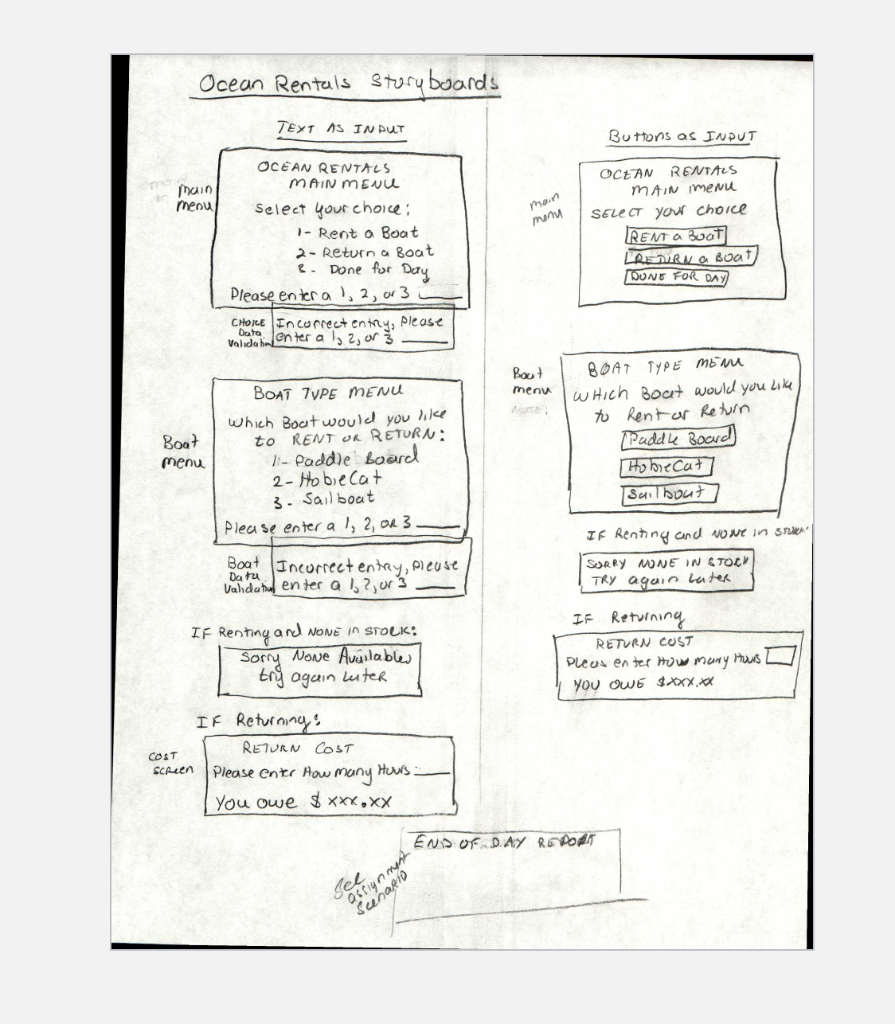 Ocean Rentals Storyboards
TEXT AS INPUT
main
menu
OCEAN RENTALS
MAIN MENU
Select your choice:
1- Rent a Boat
2- Return a Boat
3- Done for Day
Please enter a 1, 2, or 3 ____
CHOICE
Data
Validation
Incorrect entry, Please
enter a 1, 2, or 3 ____
Boat
menu
BOAT TYPE MENU
Which Boat would you like
to RENT OR RETURN:
1- Paddle Board
2- HobieCat
3- Sailboat
Please enter a 1, 2, OR 3 ____
Boat
Data
Validation
Incorrect entry, please
enter a 1, 2, or 3 ____
IF Renting and NONE IN STOCK:
Sorry None Available,
try again Later
IF Returning:
COST
SCREEN
RETURN COST
Please enter How many Hours: ____
You owe $ xxx.xx
Buttons as INPUT
main
menu
OCEAN RENTALS
MAIN MENU
SELECT your choice
RENT a Boat
RETURN a BOAT
DONE FOR DAY
Boat
menu
BOAT TYPE MENU
WHich Boat would you like
to Rent or Return
Paddle Board
HobieCat
Sailboat
IF Renting and NONE IN STOCK:
SORRY NONE IN STOCK
TRY again Later
IF Returning
RETURN COST
Pleas enter How many Hours
YOU OWE $xxx.xx
END OF DAY REPORT
See
assignment
Scenario